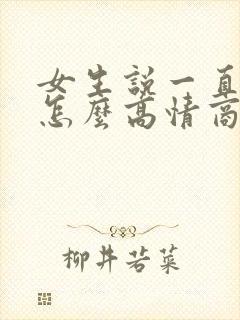 女生説一直
怎麼高情商
柳井若菜